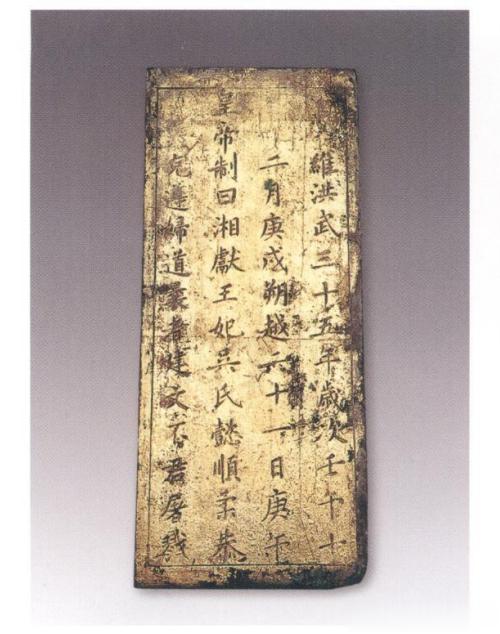 維洪武三十五年歲次壬午十
二月庚戌朔越十一日庚午
皇帝制曰湘獻王妃吳氏懿順柔恭
克遵婦道曩者建文不君屠戮